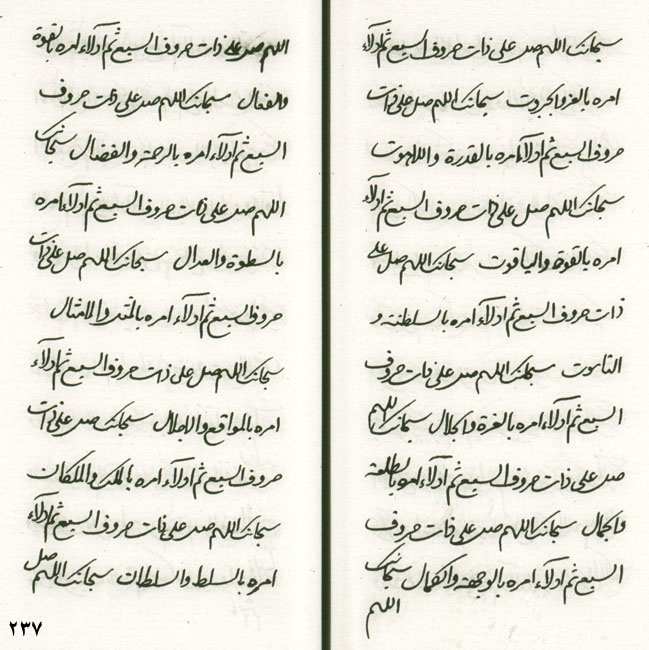 سبحانک اللهم صل علی ذات حروف السبع ثم ادلآء
امره بالعز والجبروت سبحانک اللهم صل علی ذات
حروف السبع ثم ادلآء امره بالقدرة واللاهوت
سبحانک اللهم صل علی ذات حروف السبع ثم ادلآء
امره بالقوة والیاقوت سبحانک اللهم صل علی
ذات حروف السبع ثم ادلآء امره بالسلطنة و
الناسوت سبحانک اللهم صل علی ذات حروف
السبع ثم ادلآء امره بالعزة والجلال سبحانک اللهم
صل علی ذات حروف السبع ثم ادلآء امره بالطلعة
والجمال سبحانک اللهم صل علی ذات حروف
السبع ثم ادلآء امره بالوجهة والکمال سبحانک
اللهم
اللهم صل علی ذات حروف السبع ثم ادلآء امره بالقوة
والفعال سبحانک اللهم صل علی ذات حروف
السبع ثم ادلآء امره بالرحمة والفضال سبحانک
اللهم صل علی ذات حروف السبع ثم ادلآء امره
بالسطوة والعدال سبحانک اللهم صل علی ذات
حروف السبع ثم ادلآء امره بالمثل والامثال
سبحانک اللهم صل علی ذات حروف السبع ثم ادلآء
امره بالمواقع والاجلال سبحانک صل علی ذات
حروف السبع ثم ادلآء امره بالملک والملکان
سبحانک اللهم صل علی ذات حروف السبع ثم ادلآء
امره بالسلط والسلطات سبحانک اللهم صل
۲۳۷